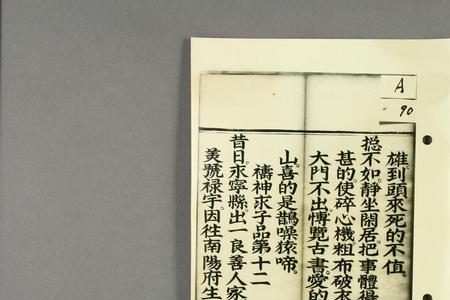 A
90
雄到頭來死的不值。
捴不如。靜坐閑居。把事體得
甚的。使碎心機。粗布破衣
大門不出。博覽古書。愛的
山。喜的是。鵲噪猿啼。
禱神求子品第十二
昔日。永寧縣。出一良善人家
美號禄字。因往南陽府生